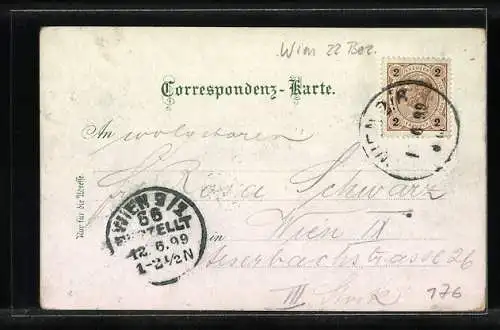 Wien 22 Bez.
Correspondenz-Karte.
2 2
2 2
WIEN
99
An wolgeboren
Nur für die Adresse.
Fr Rosa Schwarz
WIEN 9/3
66
BESTELLT
12.6.99
1-2½N
Wien IX
Bachstrasse 26
III Stock
176